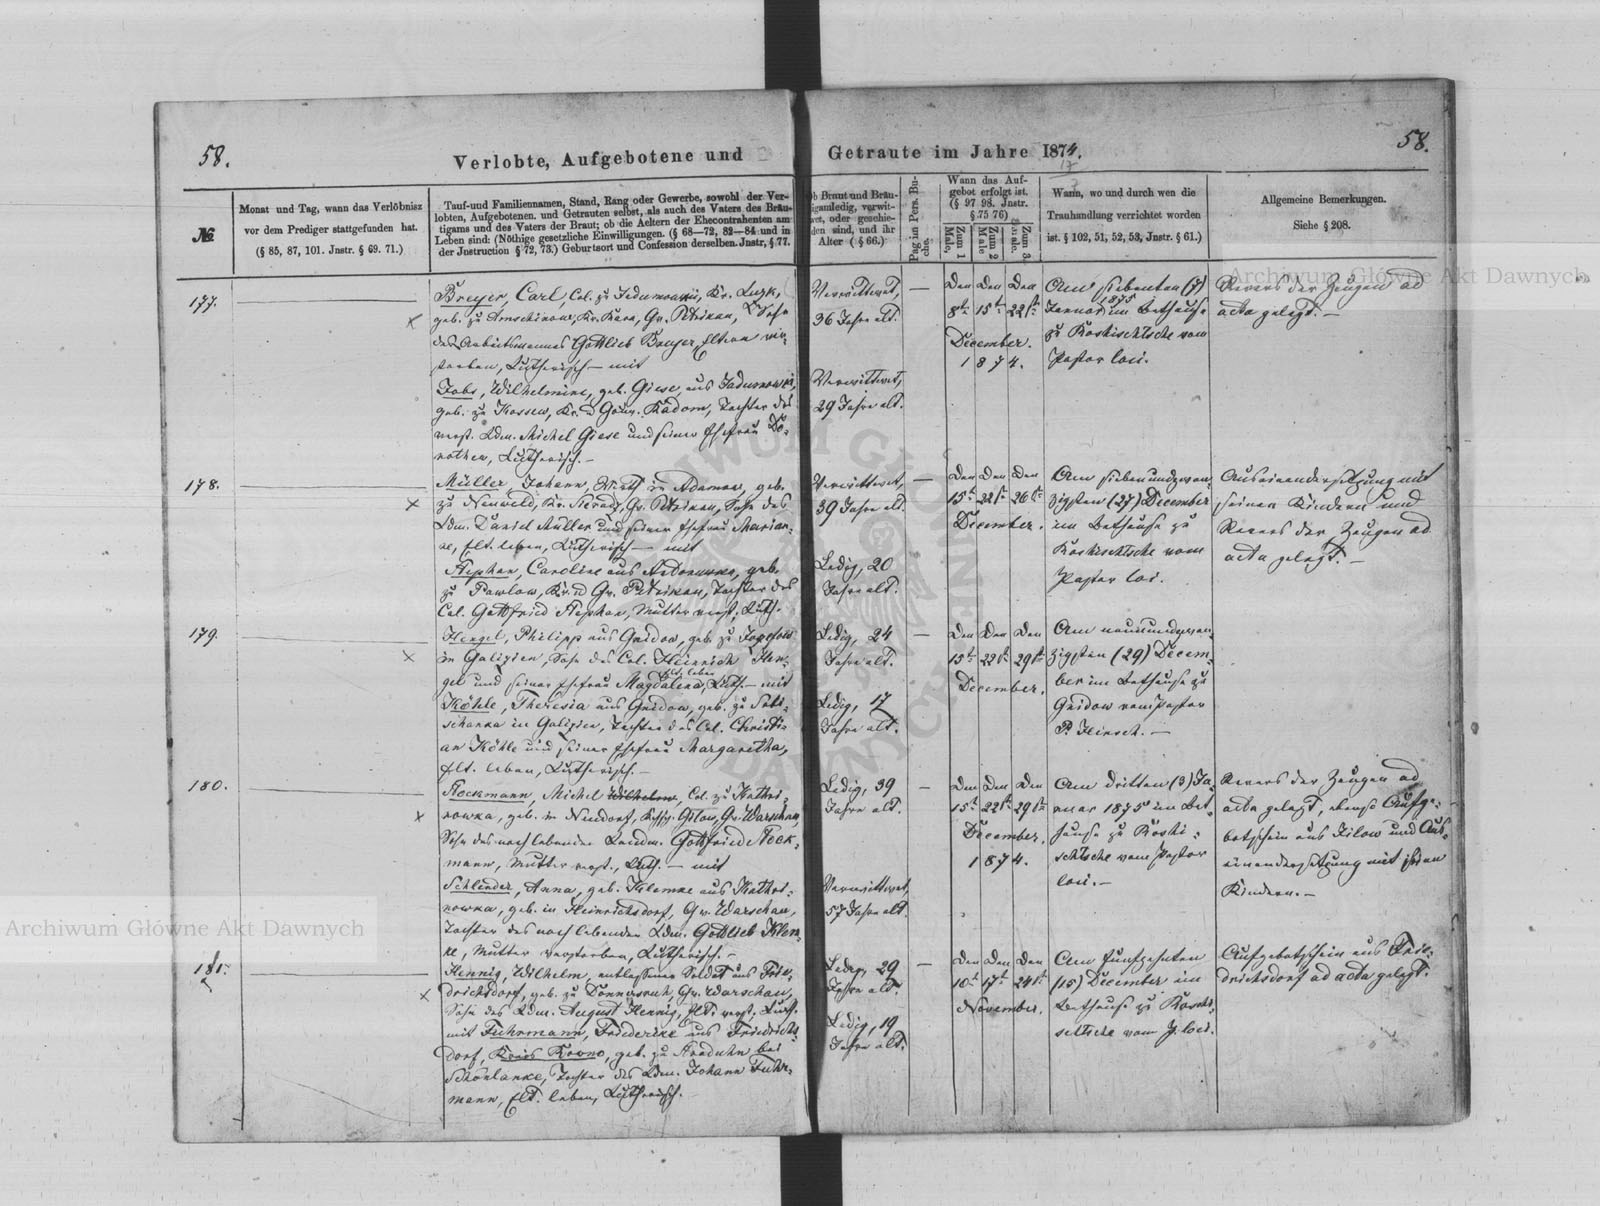 58.
Verlobte, Aufgebotene und
Getraute im Jahre 1874.
58.
№
Monat und Tag, wann das Verlöbniss
vor dem Prediger stattgefunden hat.
(§ 85, 87, 101. Jnstr. § 69. 71.)
Tauf-und Familiennamen, Stand, Rang oder Gewerbe, sowohl der Ver-
lobten, Aufgebotenen. und Getrauten selbst, als auch des Vaters des Bräu-
tigams und des Vaters der Braut; ob die Aeltern der Ehecontrahenten am
Leben sind: (Nöthige gesetzliche Einwilligungen. (§ 68—72, 82—84 und in
der Jnstruction § 72, 73.) Geburtsort und Confession derselben. Jnstr, § 77.
Ob Braut und Bräu-
tigam ledig, verwit-
wet, oder geschie-
den sind, und ihr
Alter ( § 66.)
Pag im Pers. Bu-
che.
Wann das Auf-
gebot erfolgt ist.
(§ 97 98. Jnstr.
§ 75 76)
Zum 1 Male,
Zum 2 Male
Zum 3. Male.
Wann, wo und durch wen die
Trauhandlung verrichtet worden
ist. § 102, 51, 52, 53, Jnstr. § 61.)
Allgemeine Bemerkungen.
Siehe § 208.
177.
Breyer, Carl, Col. zu Kr. Luzk,
geb. zu Kr. Gv. Petrikau, Sohn
des Arbeitsmannes Gottlieb Breyer, Eltern ver-
storben, Lutherisch — mit
Jobs, Wilhelmine, geb. Giese, aus
geb. zu Kossew, Kr. u Gouv. Radom, Tochter des
verst. Ldm. Michel Giese und seiner Ehefrau Do-
rothea, Lutherisch. —
Verwittwet,
36 Jahre alt.
Verwittwet,
29 Jahre alt.
Den Den Den
8t. 15t. 22st.
December.
1874.
Am siebenten (7)
Januar 1875 im Bethause
zu Roskischtsche vom
Pastor Loci.
Revers der Zeugen ad
acta gelegt. —
178.
Müller, Johann, Wirth in Adamow, geb.
zu Neuweld, Kr. Sieradz, Gv. Petrikau, Sohn des
Ldm. Daniel Müller und seiner Ehefrau Marian-
ne, Elt. leben, Lutherisch — mit
Stephan, Caroline aus geb.
zu Pawlow, Kr. u Gv. Petrikau, Tochter des
Col. Gottfried Stephan, Mutter verst. Luth.
Verwittwet,
39 Jahre alt.
Ledig, 20
Jahre alt.
Den Den Den
15t. 22st. 26st.
December.
Am siebenundzwan-
zigsten (27) December
im Bethause zu
Roskischtsche vom
Pastor Loci.
Auseinandersetzung mit
seinen Kindern und
Revers der Zeugen ad
acta gelegt. —
179.
Hengel, Philipp aus Gnidow, geb. zu Josefow
in Galizien, Sohn des Col. Heinrich Hen-
gel und seiner Ehefrau Magdalena, Elt. leben, Luth. — mit
Köhle, Theresia aus Gnidow, geb. zu
in Galizien, Tochter des Col. Christi-
an Köhle und seiner Ehefrau Margaretha,
Elt. leben, Lutherisch. —
Ledig, 24
Jahre alt.
Ledig, 17
Jahre alt.
Den Den Den
15t. 22st. 29st.
December.
Am neunundzwan-
zigsten (29) Decem-
ber im Bethause zu
Gnidow vom Pastor
P. Hirsch. —
180.
Stockmann, Michel Wilhelm, Col. zu Kathri-
nowka, geb. in Neudorf, Gilow, Gv. Warschau
Sohn des noch lebenden Gottfried Stock-
mann, Mutter verst., Luth. — mit
Schlender, Anna, geb. Klemke aus Kathri-
nowka, geb. in Heinrichsdorf, Gv. Warschau,
Tochter des noch lebenden Ldm. Gottlieb Klem-
ke, Mutter verstorben, Lutherisch. —
Ledig, 39
Jahre alt.
Verwittwet,
57 Jahre alt.
Den Den Den
15t. 22st. 29st.
December.
1874.
Am dritten (3) Ja-
nuar 1875 im Bet-
hause zu Roski-
schtsche vom Pastor
loci. —
Revers der Zeugen ad
acta gelegt, ebenso Aufge-
botschein aus Kilow und Aus-
einandersetzung mit ihren
Kindern. —
181.
Hennig, Wilhelm, entlassener Soldat aus Frie-
drichsdorf, geb. zu Donnersruh, Gv. Warschau,
Sohn des Ldm. August Hennig, Elt. verst. Luth.
mit Fuhrmann, Friederike aus Friedrichs-
dorf, Kreis Rovno, geb. zu Straduhn bei
Schönlanke, Tochter des Ldm. Johann Fuhr-
mann, Elt. leben, Lutherisch.
Ledig, 29
Jahre alt.
Ledig, 19
Jahre alt.
Den Den Den
10t. 17t. 24st.
November.
Am fünfzehnten
(15) December im
Bethause zu Roski-
schtsche vom P. loci.
Aufgebotschein aus Frie-
drichsdorf ad acta gelegt.
Archiwum Główne Akt Dawnych
Archiwum Główne Akt Dawnych